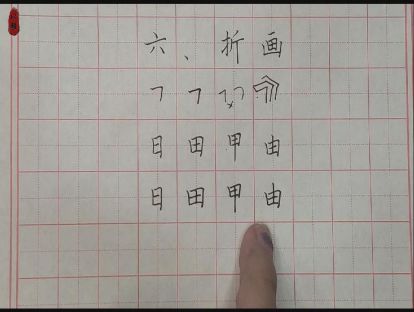 六、折画
日田甲由
日田甲由